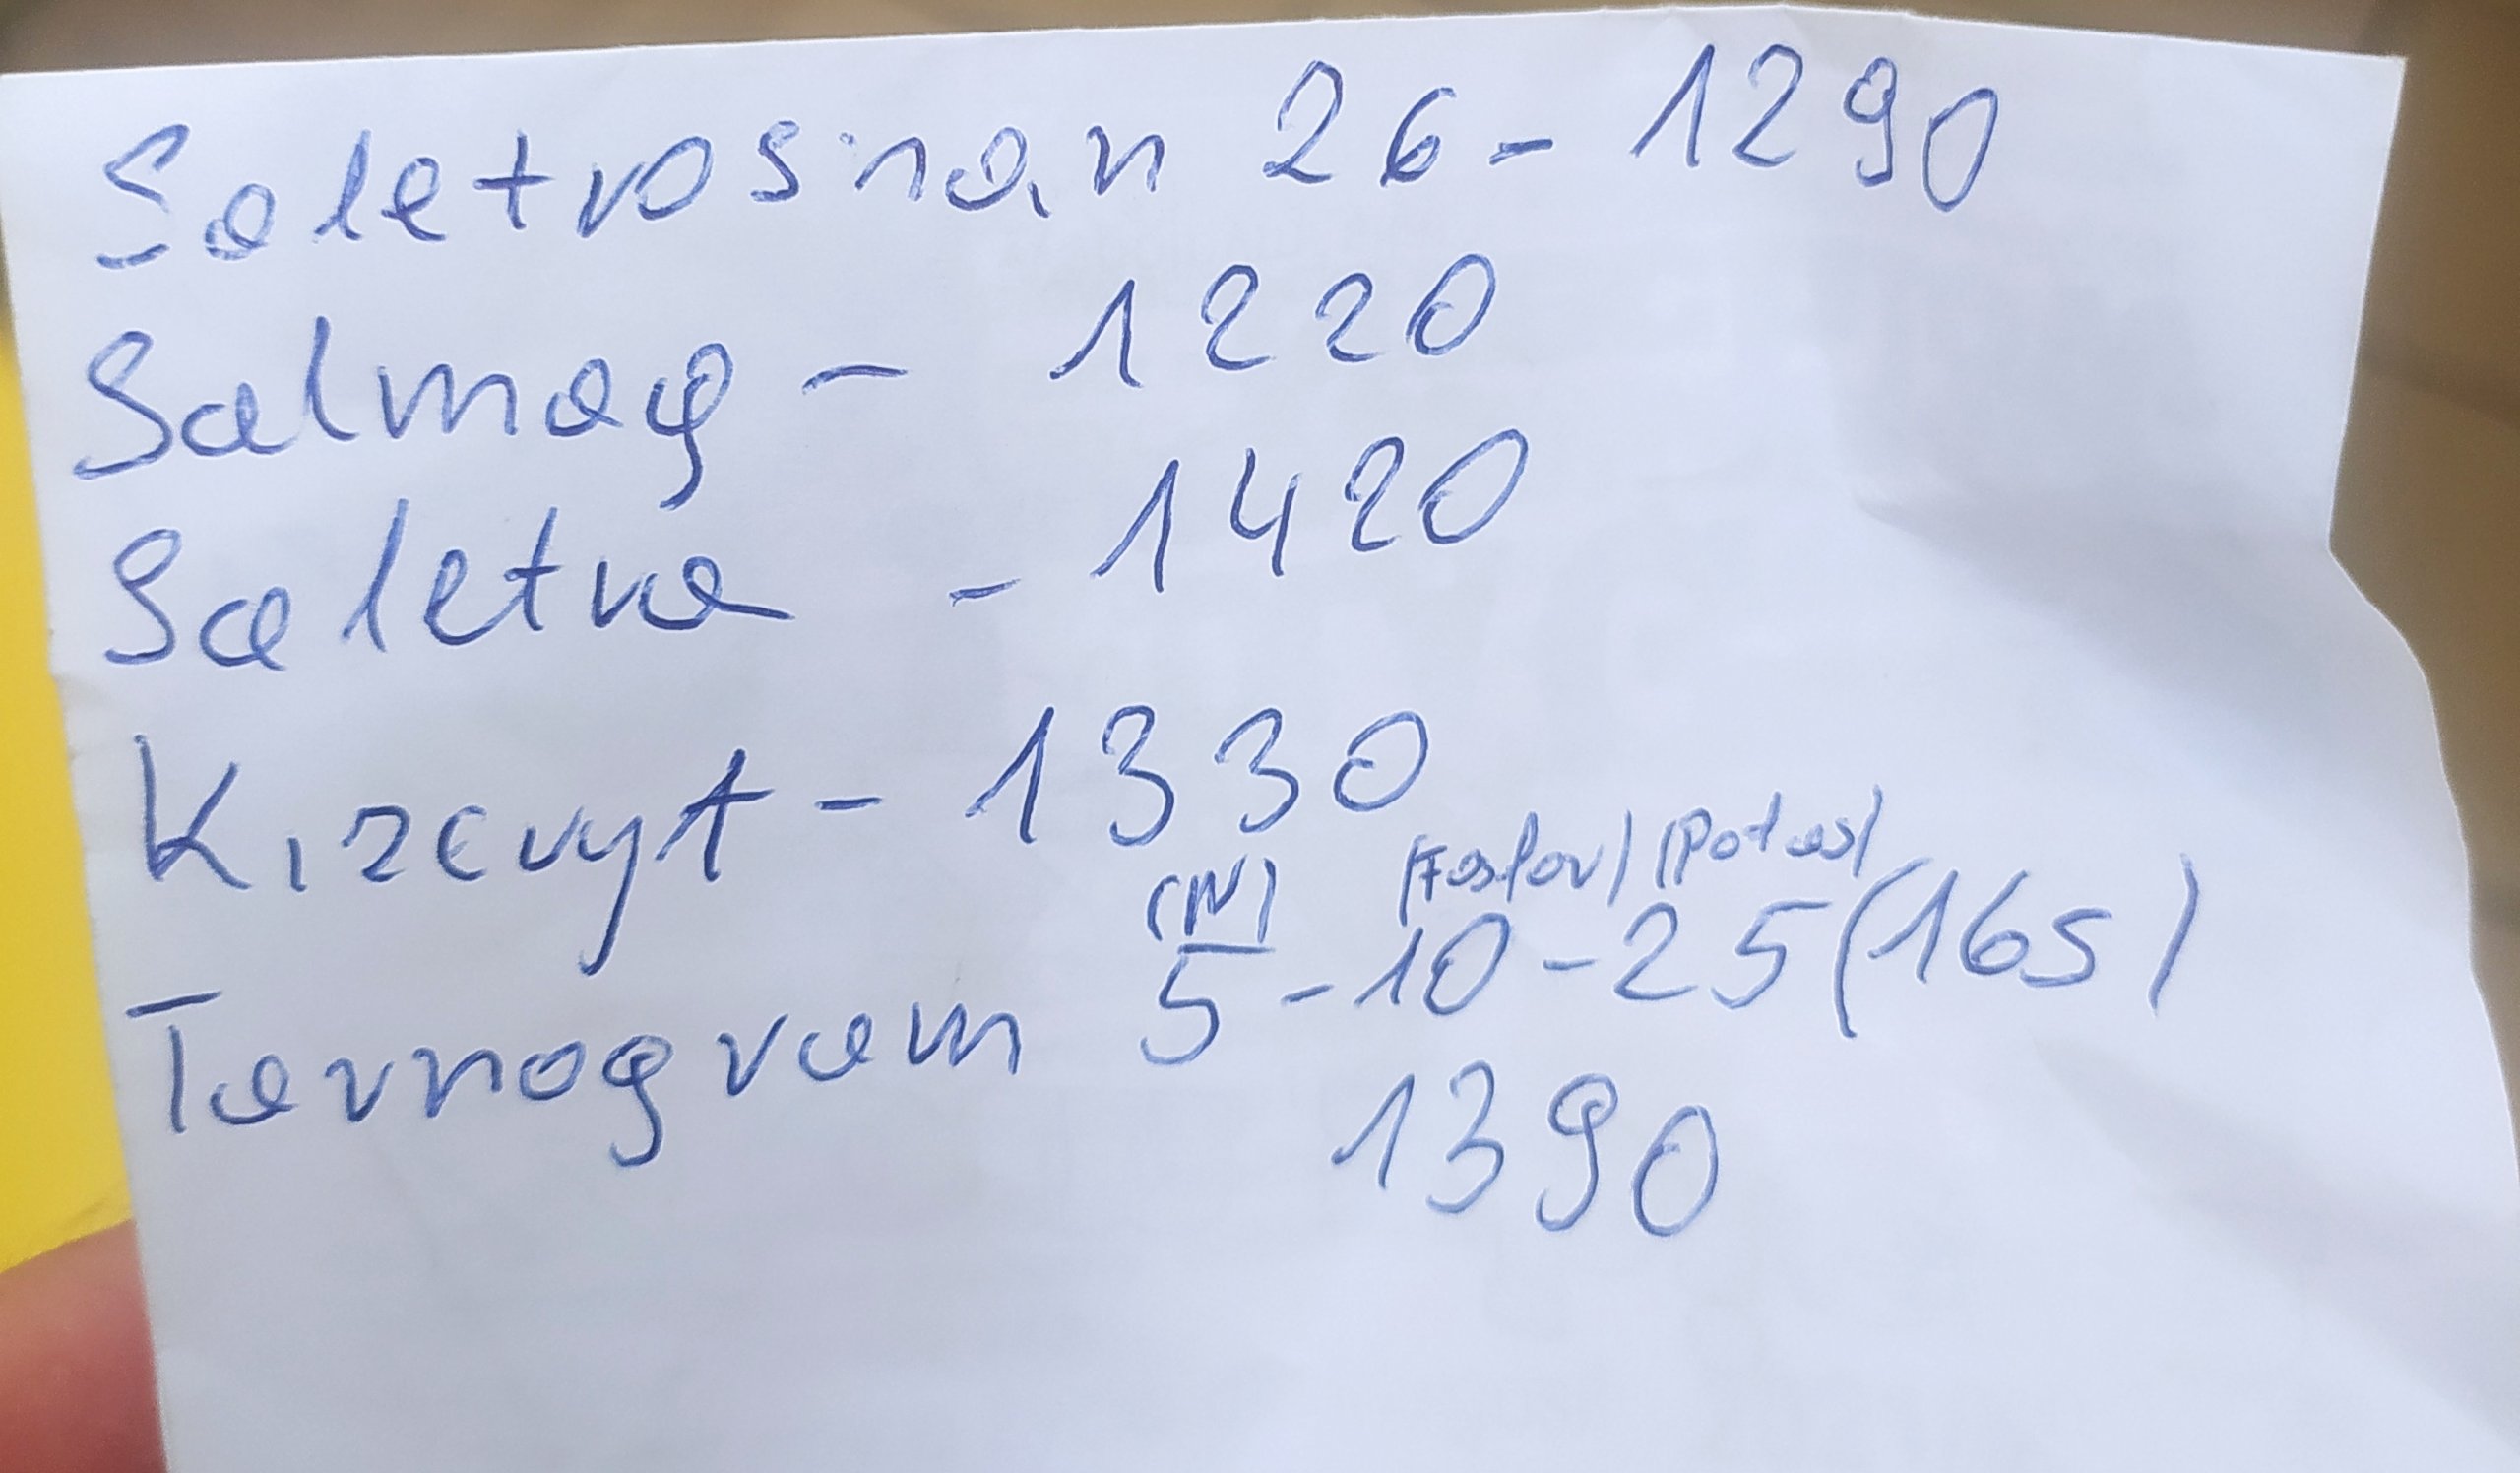 Saletrosnan 26 - 1290
Salmag - 1220
Saletra - 1420
Kizeryt - 1330
(N) (Fosfor) (Potas)
Tarnogram 5 - 10 - 25 (16s)
1390